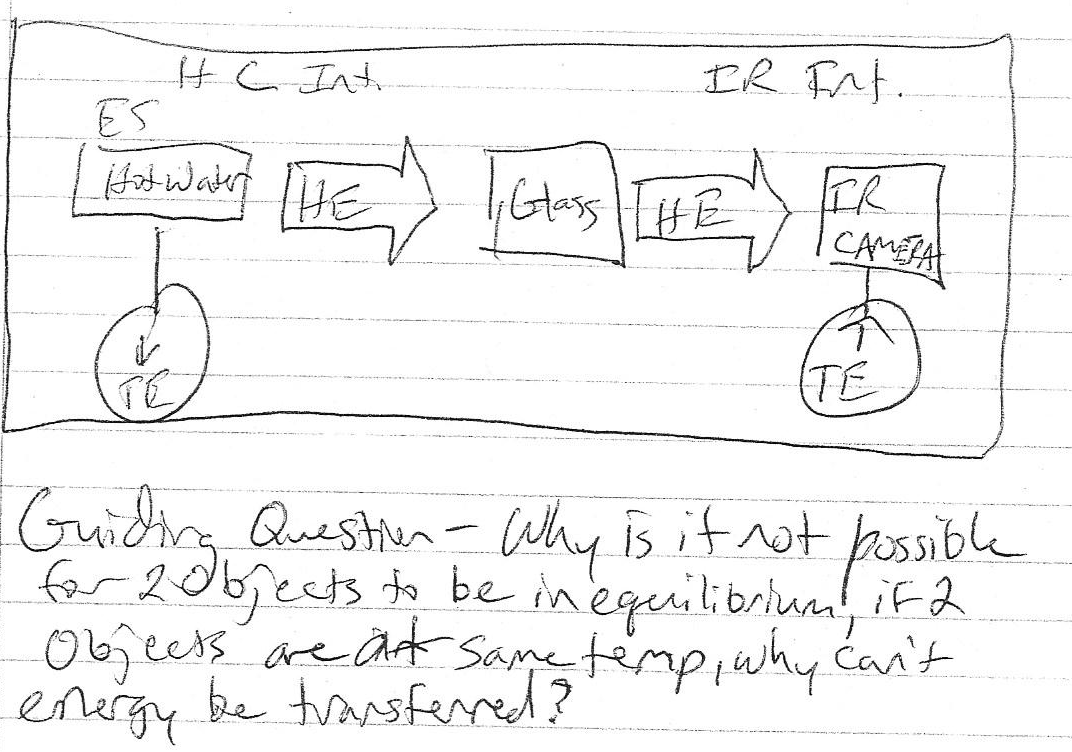 H C Int. IR Int.
ES
Hot Water HE Glass HE IR
CAMERA
TE TE
Guiding Question - Why is it not possible
for 2 Objects to be in equilibrium, if 2
Objects are at same temp, why can't
energy be transferred?